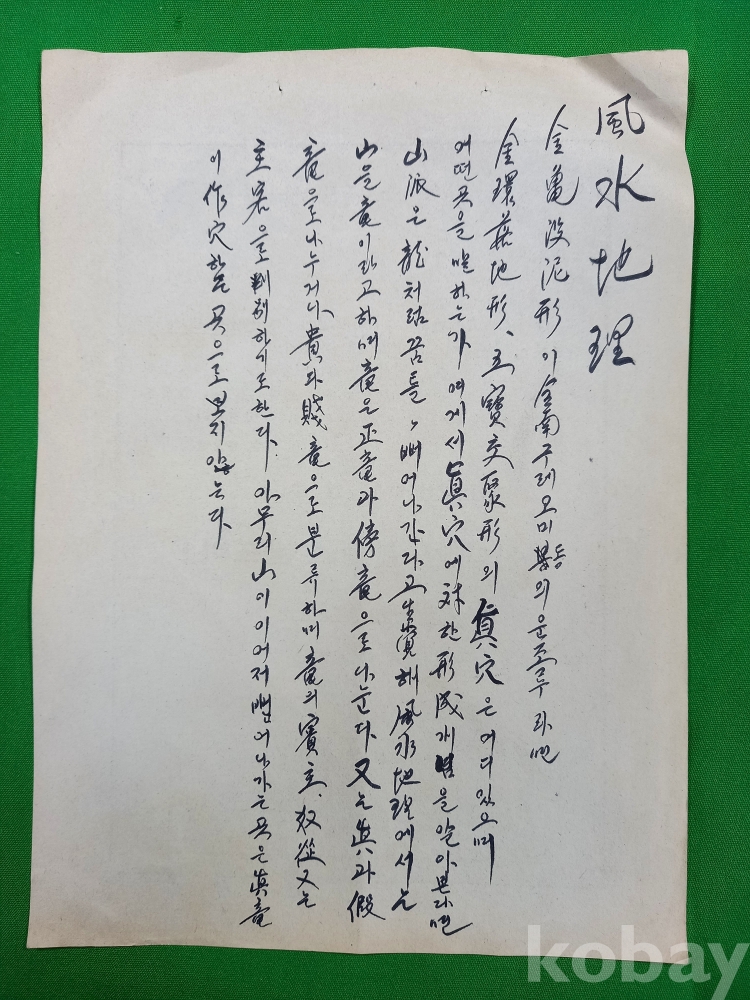 風水地理
金亀沒泥形이 全南구례 오미동의 운조루라면
金環落地形、五寶交聚形의 眞穴은 어디있으며
어떤 곳을 말하는가 여게서 眞穴에 対한 形成개념을 알아본다면
山脈은 龍처럼 꿈틀、뻐어나간다고 生覺해 風水地理에서는
山을 竜이라고 하며 竜은 正竜과 傍竜으로 나눈다 又는 眞과 假
竜으로 나누거나 貴과 賤竜으로 분류하며 竜의 賓主、奴從 又는
主客으로 判別하기도한다. 아무리 山이 이어저 뻗어나가는 곳은 眞竜
이 作穴하는 곳으로 보지 않는다
kobay